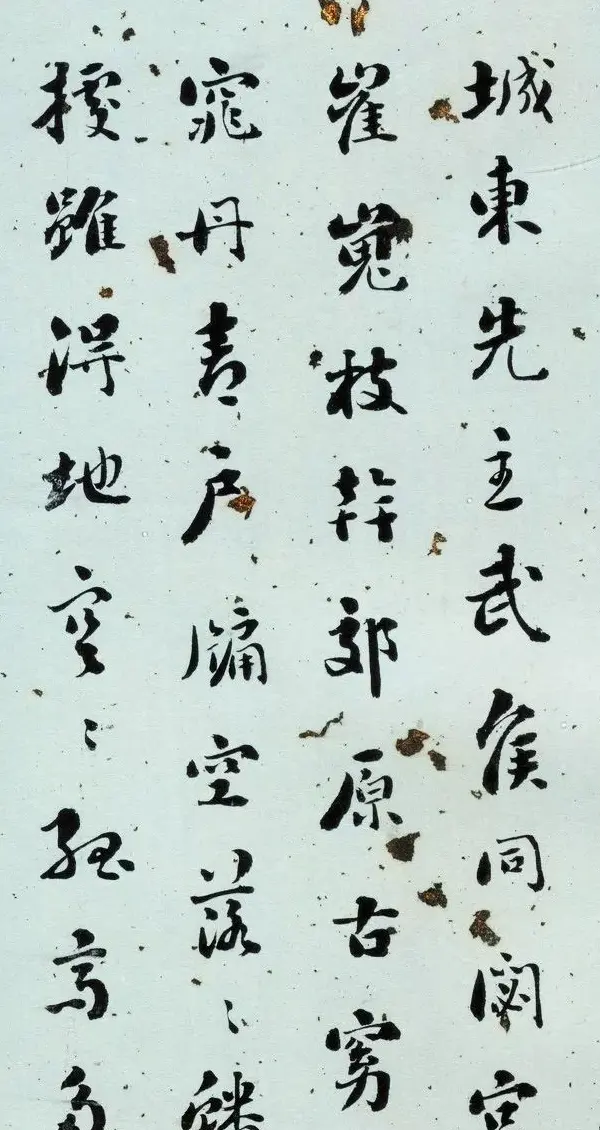 城東先主武侯同閟宮
崔嵬枝幹郊原古窈
窕丹青戶牖空落〻蟠
據雖得地冥〻孤高多